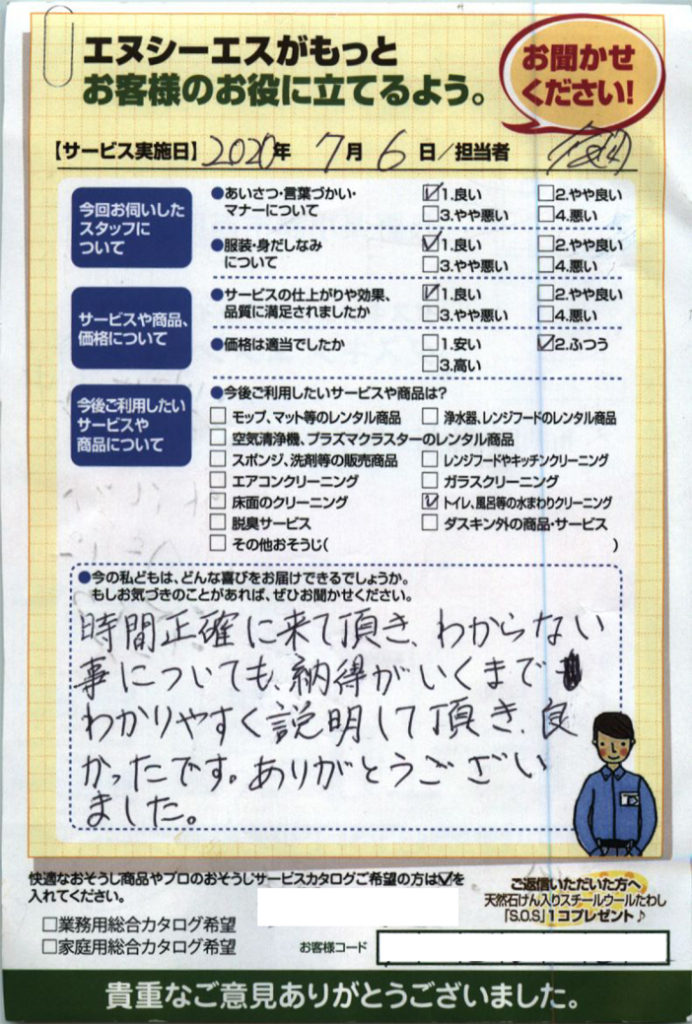 エヌシーエスがもっと
お客様のお役に立てるよう。
お聞かせ
ください!
【サービス実施日】2020年 7月 6日/担当者
今回お伺いした
スタッフに
ついて
●あいさつ・言葉づかい・
マナーについて
☑1.良い □2.やや良い
□3.やや悪い □4.悪い
●服装・身だしなみ
について
☑1.良い □2.やや良い
□3.やや悪い □4.悪い
サービスや商品、
価格について
●サービスの仕上がりや効果、
品質に満足されましたか
☑1.良い □2.やや良い
□3.やや悪い □4.悪い
●価格は適当でしたか
□1.安い ☑2.ふつう
□3.高い
今後ご利用したい
サービスや
商品について
●今後ご利用したいサービスや商品は?
□ モップ、マット等のレンタル商品 □ 浄水器、レンジフードのレンタル商品
□ 空気清浄機、プラズマクラスターのレンタル商品
□ スポンジ、洗剤等の販売商品 □ レンジフードやキッチンクリーニング
□ エアコンクリーニング □ ガラスクリーニング
□ 床面のクリーニング ☑ トイレ、風呂等の水まわりクリーニング
□ 脱臭サービス □ ダスキン外の商品・サービス
□ その他おそうじ( )
●今の私どもは、どんな喜びをお届けできるでしょうか。
もしお気づきのことがあれば、ぜひお聞かせください。
時間正確に来て頂き、わからない
事についても、納得がいくまで
わかりやすく説明して頂き、良
かったです。ありがとうござい
ました。
快適なおそうじ商品やプロのおそうじサービスカタログご希望の方は☑を
入れてください。
□業務用総合カタログ希望
□家庭用総合カタログ希望
ご返信いただいた方へ
天然石けん入りスチールウールたわし
「S.O.S」1コプレゼント♪
お客様コード
貴重なご意見ありがとうございました。